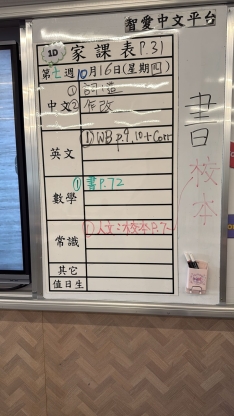 智愛中文平台
1D 家課表 P.31
第七週 10月16日(星期四)
① 詞造
中文② 作改
英文 ① WB p.9, 10 + Corr
數學 ① 書 P.72
常識 ① 人文：校本 P.7~
其它
值日生
書
日
校
本